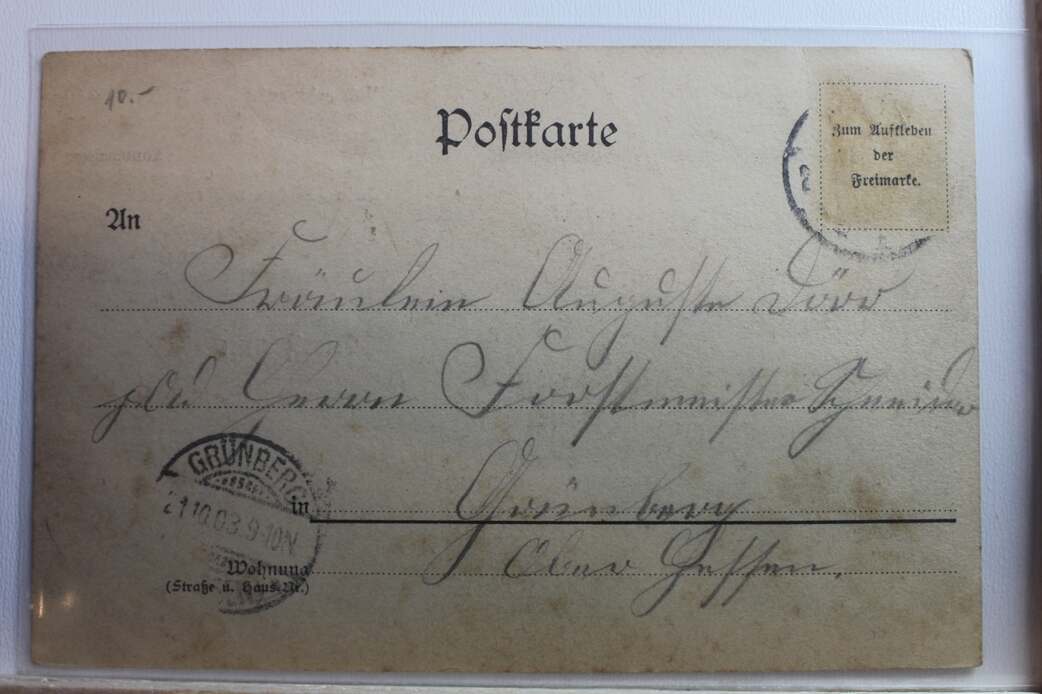 10.-
Postkarte
Zum Aufkleben
der
Freimarke.
An
Fräulein Auguste Dörr
Herrn Forstmeister Schneider
GRÜNBERG
HESSEN
1.10.03.9-10N
in Grünberg
Ober Hessen.
Wohnung
(Straße u. Haus-Nr.)